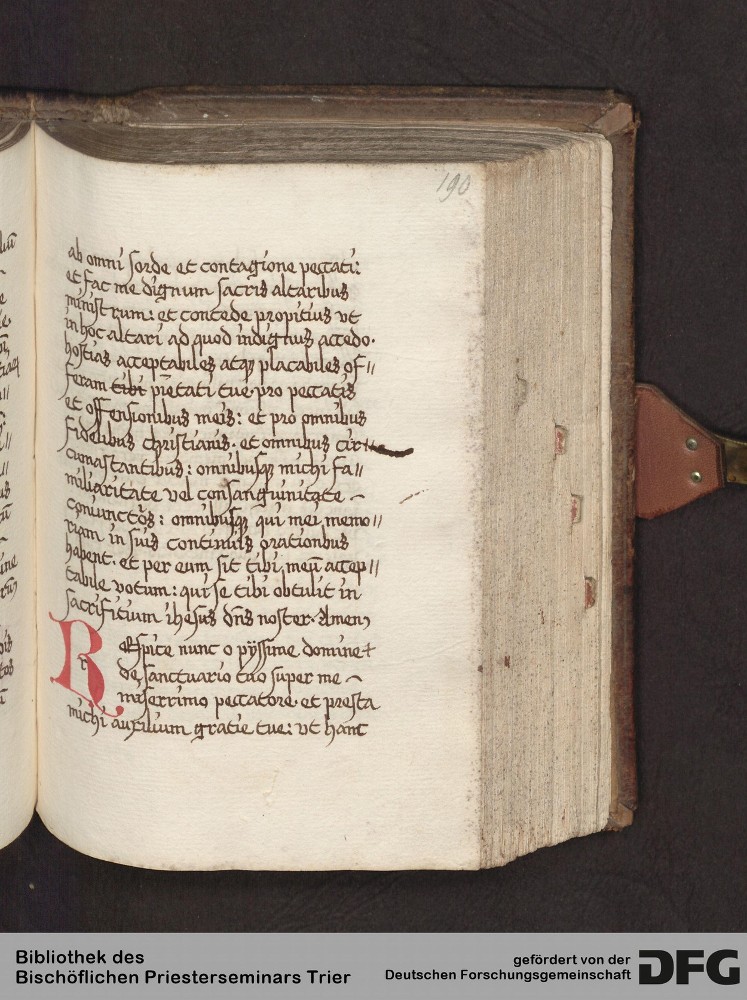 190
ab omni sorde et contagione peccati:
et fac me dignum sacris altaribus
ministrum: et concede propitius vt
in hoc altari ad quod indignus accedo.
hostias acceptabiles atqꝫ placabiles of//
feram tibi pietati tue pro peccatis
et offensionibus meis: et pro omnibus
fidelibus christianis. et omnibus cir//
cumastantibus: omnibusqꝫ michi fa//
miliaritate vel consanguinitate ~
coniunctos: omnibusqꝫ qui mei memo//
riam in suis continuis orationibus
habent. et per eum sit tibi meū accep//
tabile votum: qui se tibi obtulit in
sacrifitium ihesus dn̄s noster. Amen
REspice nunc o pyssime domine
de sanctuario tuo super me ~
miserrimo peccatore. et presta
michi auxilium gratie tue: vt hanc
Bibliothek des
Bischöflichen Priesterseminars Trier
gefördert von der
Deutschen Forschungsgemeinschaft
DFG